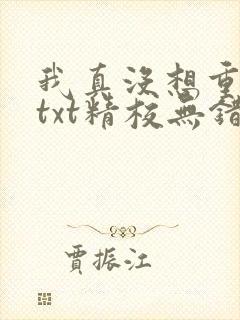 我真没想重
txt精校無錯
賈振江